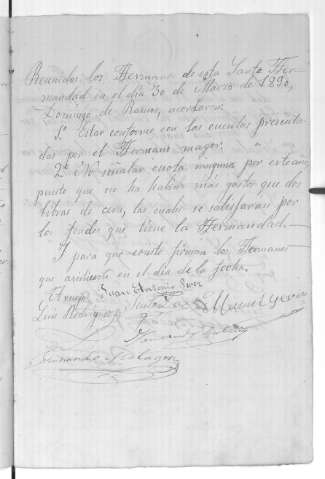 Reunidos los Hermanos de esta Santa Her-
mandad en el día 30 de Marzo de 1890,
Domingo de Ramos, acordaron:
1º Estar conforme con las cuentas presenta-
das por el Hermano mayor.
2º Nº multar cuota ninguna por este año
puesto que no ha habido más gastos que dos
libras de cera, las cuales se satisfarán por
los fondos que tiene la Hermandad.
Y para que conste firman los Hermanos
que asistieron en el día de la fecha.
Juan Antonio
Luis Rodríguez
Manuel
Fernando